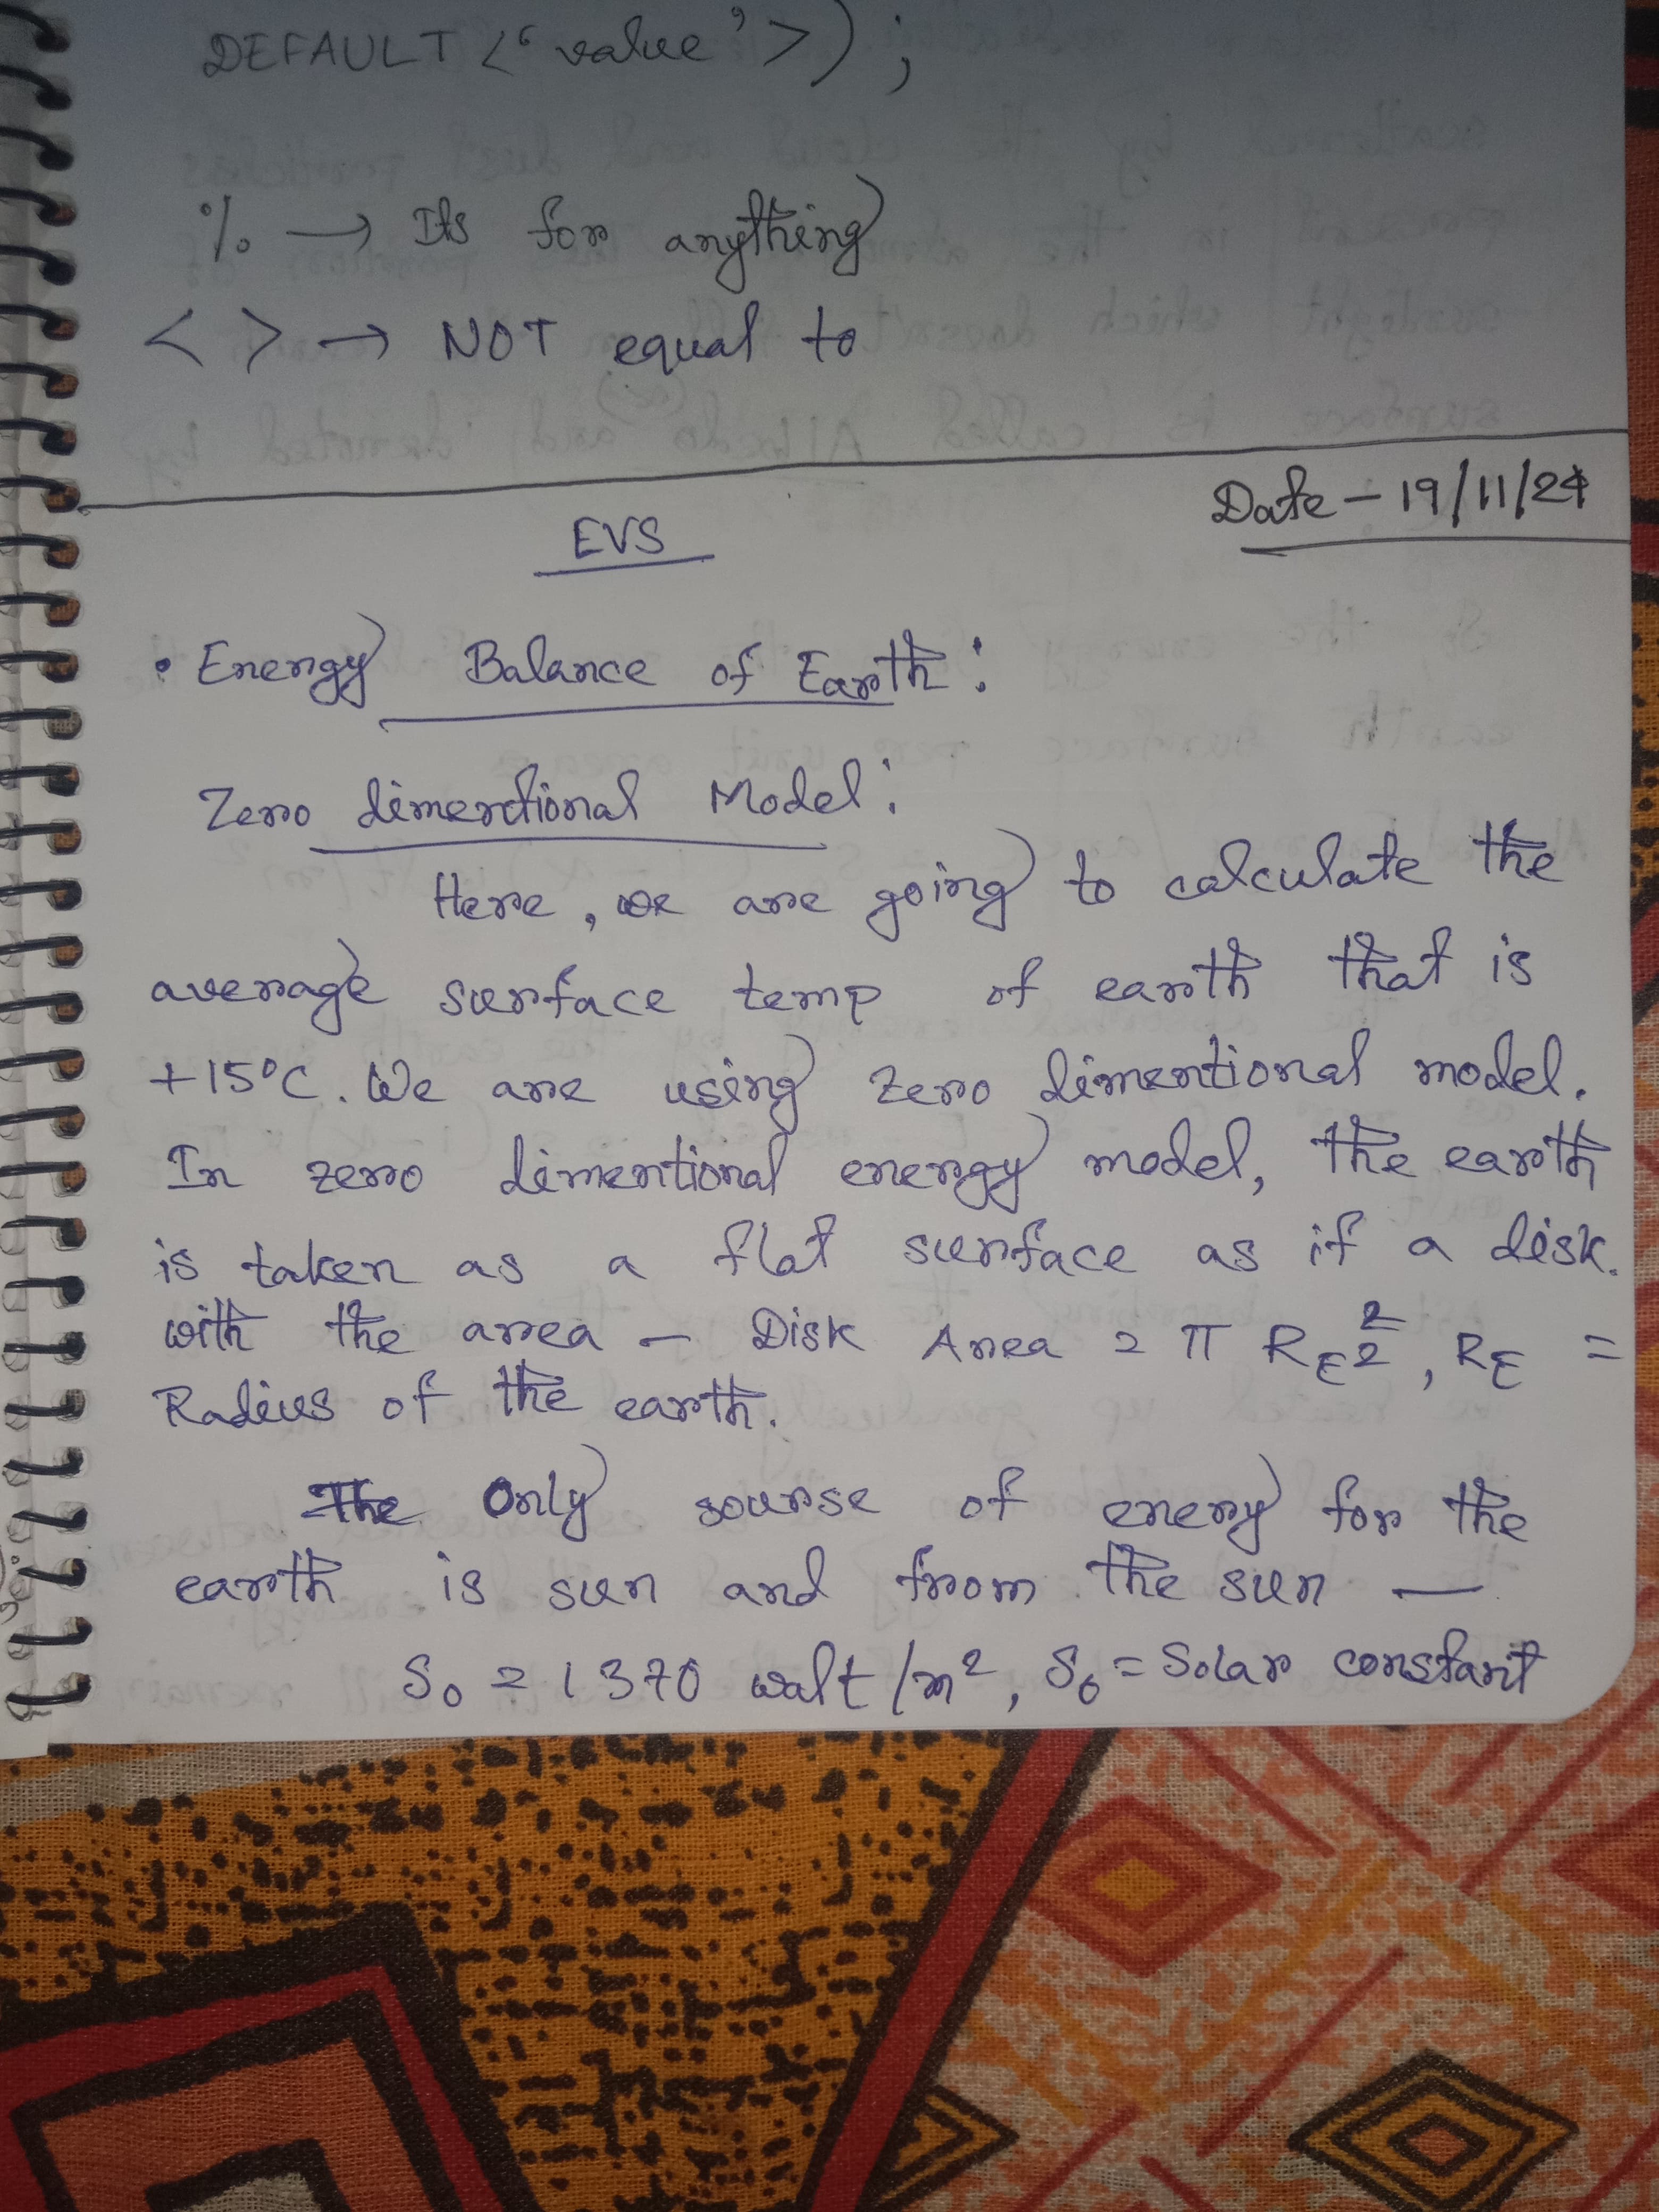 DEFAULT <'value'>);
% → Its for anything
< > → NOT equal to
Date - 19/11/24
EVS
• Energy Balance of Earth:
Zero dimentional Model:
Here, we are going to calculate the
average surface temp of earth that is
+15°C. We are using zero dimentional model.
In zero dimentional energy model, the earth
is taken as a flat surface as if a disk.
with the area - Disk Area = π R_E², R_E =
Radius of the earth.
The Only sourse of enery for the
earth is sun and from the sun —
S₀ = 1370 walt/m², S₀ = Solar constant